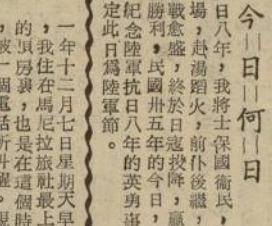 今日何日
日八年，我將士保國衛民，
場，赴湯蹈火，前仆後繼，
戰愈盛，終於日寇投降，贏
勝利，民國卅五年的今日，
紀念陸軍抗日八年的英勇事
定此日爲陸軍節。
一年十二月七日星期天早
，我住在馬尼拉旅社最上
的房裏，也是在這個時
被一個電話所叫醒。